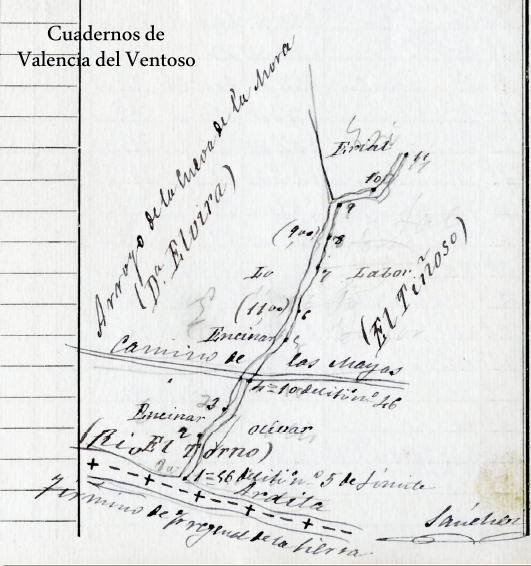 Cuadernos de
Valencia del Ventoso
Arroyo de la Cueva de la Mora
(Dª. Elvira)
Erial
11
10
9
(900)
8
7
Labor
(El Tiñoso)
(1100)
6
Encinar
5
Camino de las Mayas
4=10 del itº nº 46
3
Encinar
2
olivar
(Río El Torno)
1=56 del itº nº 5 de límite
Ardila
Término de Fregenal de la Sierra
Sánchez